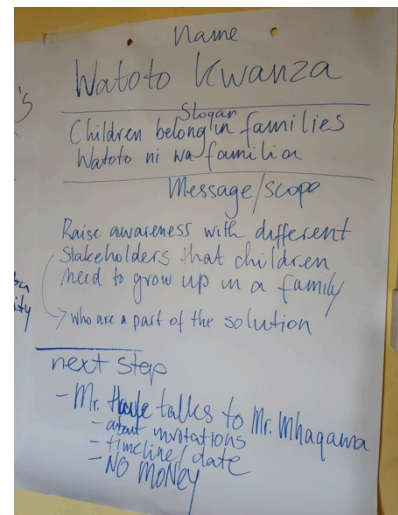 Name
Watoto Kwanza
Slogan
Children belong in families
Watoto ni wa familia
Message/scope
Raise awareness with different
stakeholders that children
need to grow up in a family
→ who are a part of the solution
next step
- Mr. talks to Mr. Mhagama
- about invitations
- timeline/date
- NO MONEY